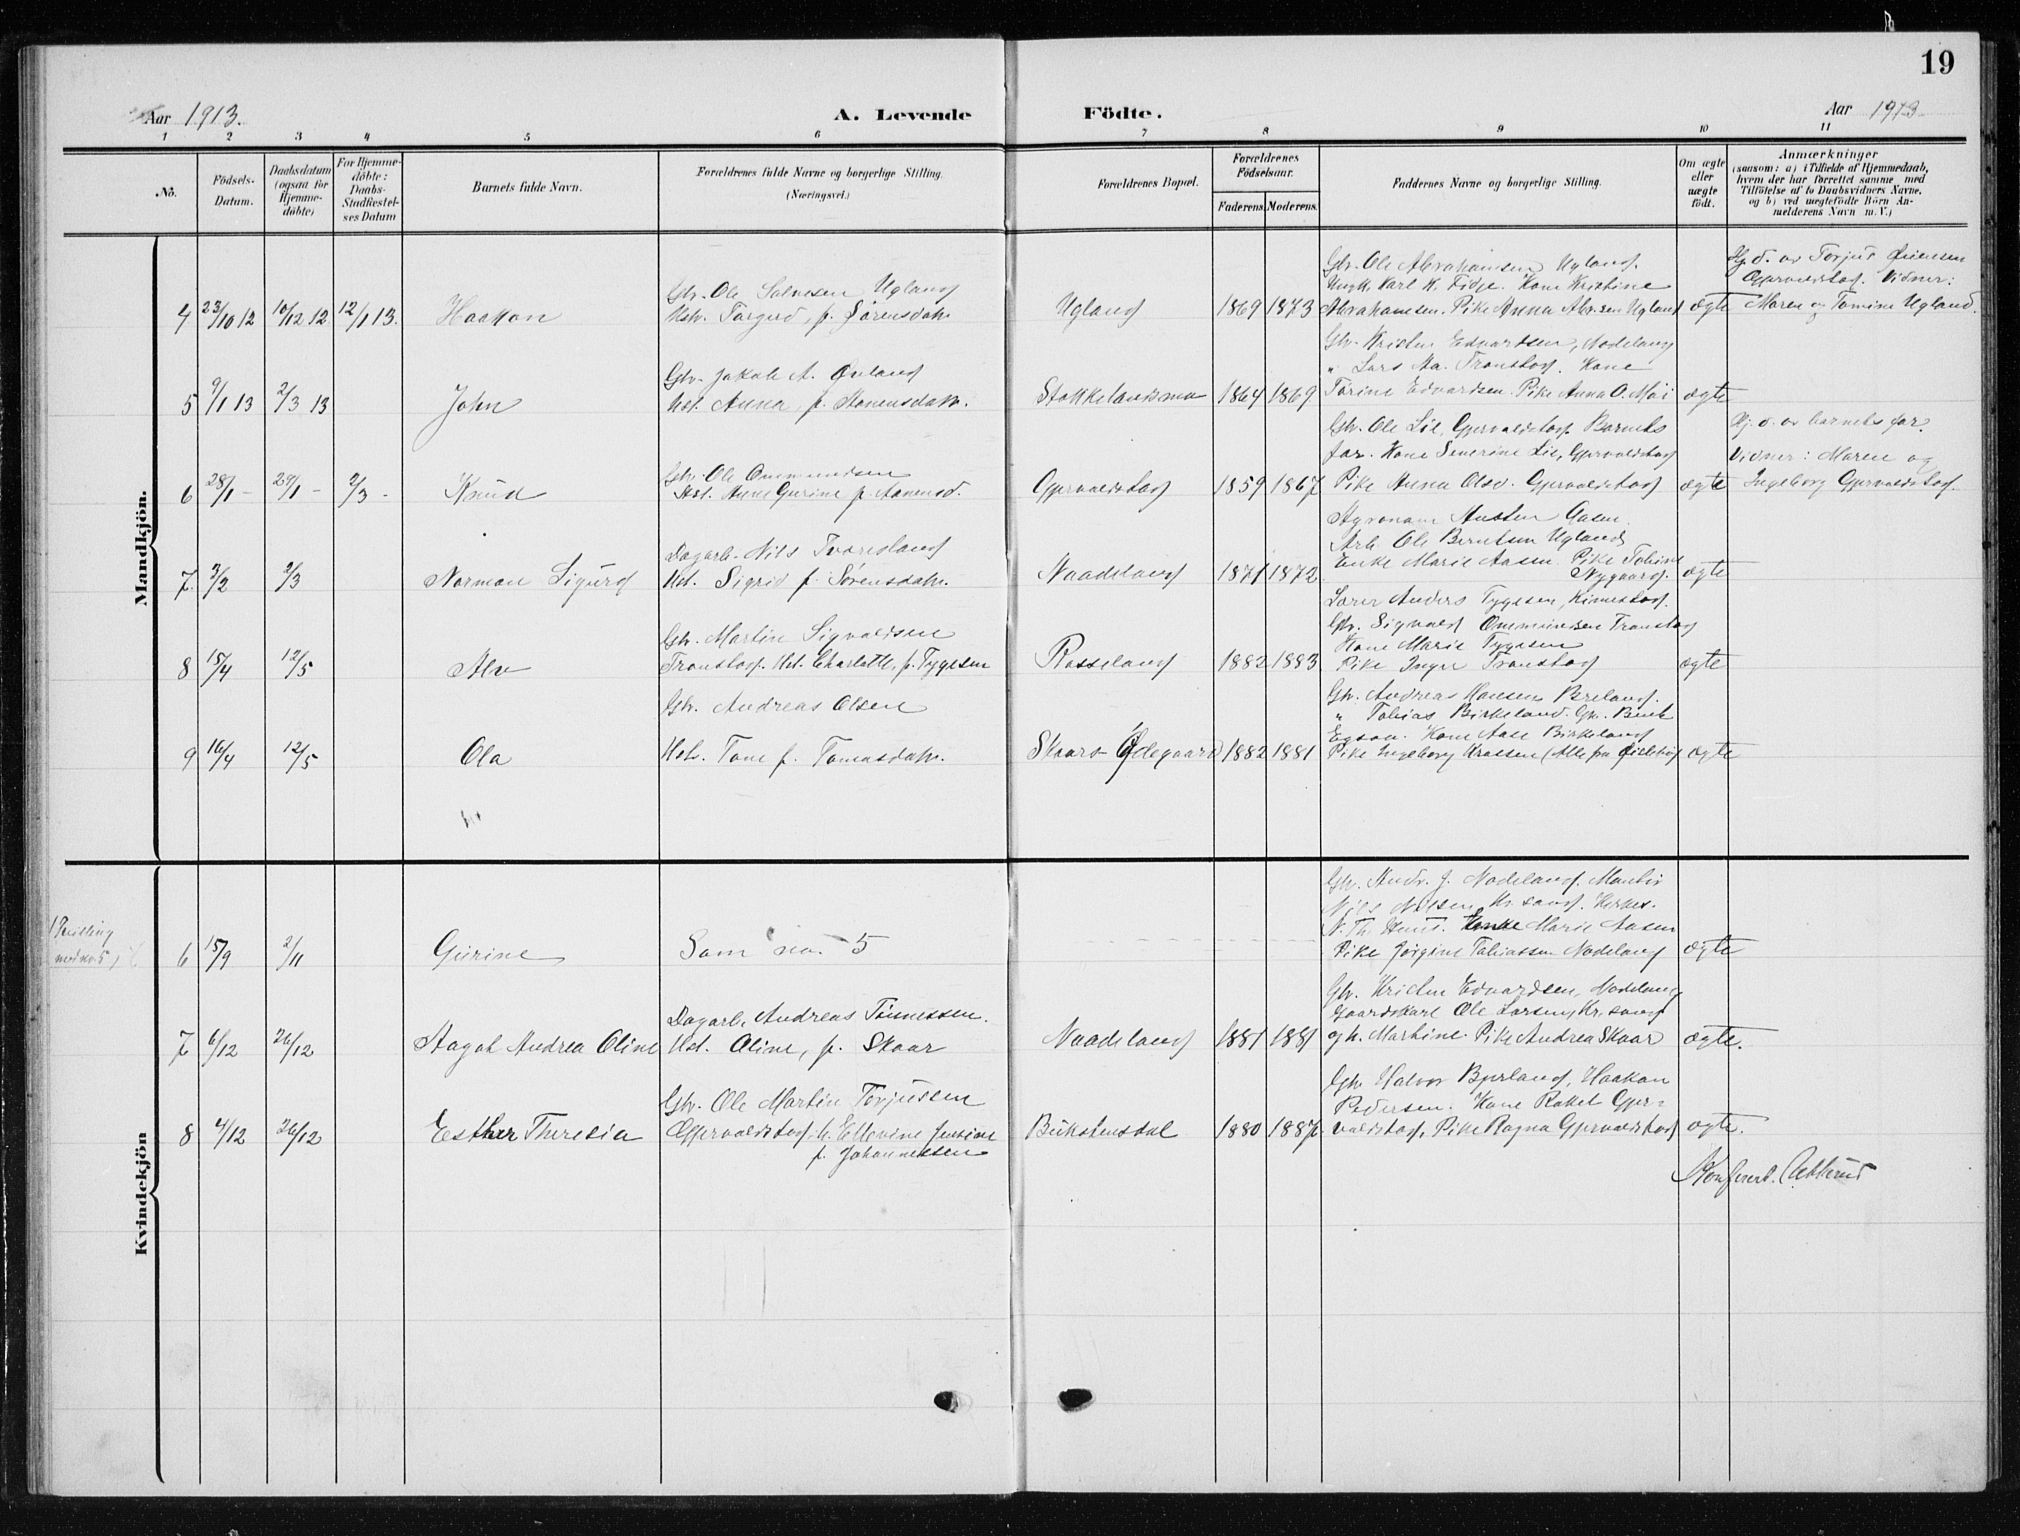 19
Aar 1913.
A. Levende
Födte.
Aar 1913
1 2 3 4 5 6 7 8 9 10 11
No.
Födsels-Datum.
Daabsdatum (ogsaa for Hjemme-döbte)
For Hjemme-döbte: Daabs-Stadfestel-ses Datum
Barnets fulde Navn.
Forældrenes fulde Navne og borgerlige Stilling. (Næringsvei.)
Forældrenes Bopæl.
Forældrenes Födselsaar.
Faderens.
Moderens.
Faddernes Navne og borgerlige Stilling.
Om ægte eller uægte födt.
Anmærkninger
(saasom: a) i Tilfælde af Hjemmedaab, hvem der har forrettet samme med Tilföielse af to Daabsvidners Navne, og b) ved uægtefödte Börn An-melderens Navn m. V.)
Mandkjön.
Gbr. Ole Abrahamsen Ugland.
Hj. d. av Torjus
Gbr. Ole Salvesen Ugland
Karl K. Fidje. Kone Kristine
Gjervoldstad. Vidner:
4 23/10 12 10/12 12 12/1 13. Haakon
Hst. Torgerd, f. Sørensdatr.
Ugland 1869 1873
Abrahamsen. Pike Anna Abr.sen Ugland ægte
Maren og Tomine Ugland.
Gbr. Kristen Edvardsen, Nodeland
Gbr. Jakob A. Øvland
" Lars Aa. Tronstad. Kone
5 9/1 13 2/3 13 John
Hst. Anna, f. Aanensdatr.
1864 1869
Torine Edvardsen. Pike Anna O. Moi ægte
Gbr. Ole Lie, Gjervoldstad. Barnets
Hj. d. av barnets far.
Gbr. Ole Ommundsen
far. Kone Severine Lie, Gjervoldstad
Vidner: Maren og
6 28/1 - 29/1 - 2/3 - Knud
Hst. Anne Gurine f. Aanensd.
Gjervoldstad 1859 1867
Pike Anna Olsd. Gjervoldstad ægte
Ingeborg Gjervoldstad.
Agronom Austen Aasen.
Dagarb. Nils Tveresland
Arb. Ole Berntsen Ugland
7. 3/2 2/3 Norman Sigurd
Hst. Sigrid f. Sørensdatr.
Naadeland 1871 1872
Enke Marie Aasen. Pike Tobine Nygaard. ægte
Lærer Anders Tygesen, Kimestad.
Gbr. Martin Sigvaldsen
Gbr. Sigvald Ommundsen Tronstad
Kone Marie Tygesen
8 15/4 12/5 Alv
Tronstad. Hst. Charlotte, f. Tygesen
Rosseland 1882 1883
Pike Inger Tronstad ægte
Gbr. Andreas Olsen
Gbr. Andreas Hansen Breland.
" Tobias Birkeland. Gbr. Bent
Egsaa. Kone Aase Birkeland
9 16/4 12/5 Ola
Hst. Tone f. Tomasdatr.
Skaare Ødegaard 1882 1881
Pike Ingeborg (Alle fra Øislebø) ægte
Kvindekjön
(Tvilling med no 5)
Gbr. Andr. J. Nodeland. Martin
Nils Nilsen Kr.sand. Kirkes.
N. Th. Enke Marie Aasen
6 15/9 2/11 Gurine
Som no. 5
Pike Jørgine Tobiassen Nodeland ægte
Gbr. Kristen Edvardsen, Nodeland
Dagarb. Andreas Tønnessen.
Gaardskarl Ole Larsen, Kr.sand
7 6/12 26/12 Aagot Andrea Oline
Hst. Oline, f. Skaar
Naadeland 1881 1881
gh. Martine. Pike Andrea Skaar ægte.
Gbr. Halvor Bjerland, Haakon
Gbr. Ole Martin Torjussen
Pedersen. Kone Rakel Gjer-
8 4/12 26/12 Esther Theresia
Gjervoldstad. h. Ellevine Jensine f. Johannessen
Bukstensdal 1880 1887.
voldstad, Pike Ragna Gjervoldstad ægte.
Konferert.